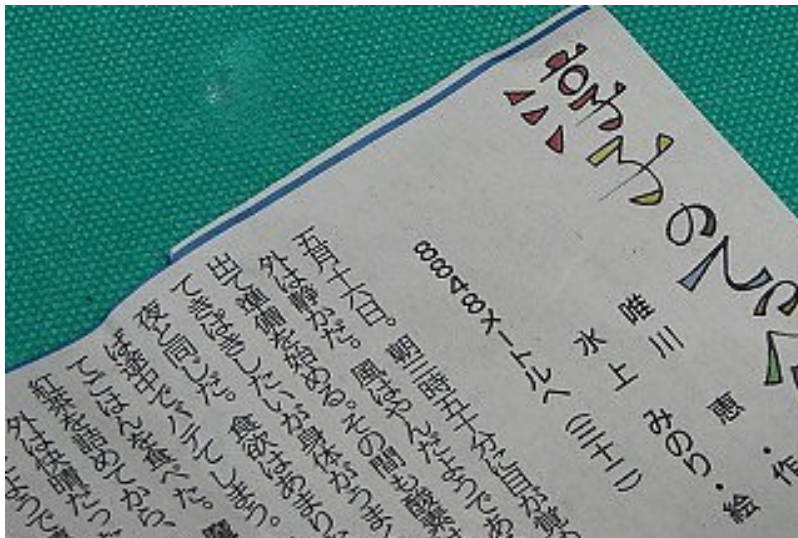 淳子のてっ
唯川 恵・作
水上 みのり・絵
8848メートルへ(三十二)
五月十六日。朝三時五十分に目が覚
外は静かだ。風はやんだようであ
出て準備を始める。その間も酸素
てきぱきしたいが身体がうまく
夜と同じだ。食欲はあまり
ば途中でバテてしまう。
てごはんを食べた。
紅茶を詰めてから、
外は快晴だっ
ようで